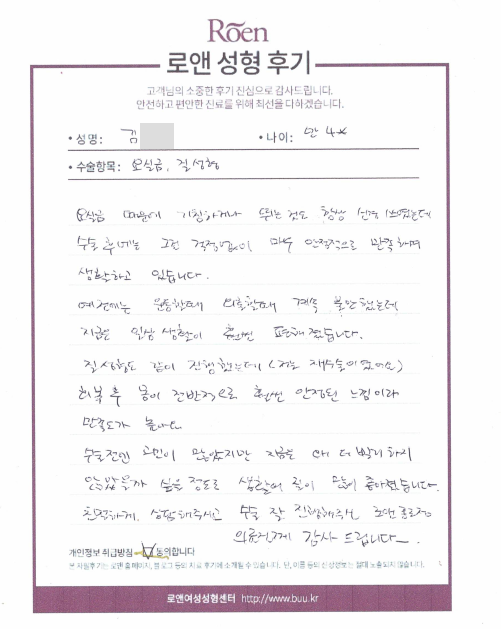 Rōen
로앤 성형 후기
고객님의 소중한 후기 진심으로 감사드립니다.
안전하고 편안한 진료를 위해 최선을 다하겠습니다.
• 성명: 김 • 나이: 만 4*
• 수술항목: 요실금, 질성형
요실금 때문에 기침하거나 뛰는것도 항상 신경 쓰였는데
수술 후에는 그런 걱정없이 매우 안정적으로 만족하며
생활하고 있습니다.
예전에는 운동할때 외출할때 계속 불안했는데
지금은 일상 생활이 훨씬 편해졌습니다.
질성형도 같이 진행했는데 (저는 재수술이었어요)
회복 후 몸이 전반적으로 훨씬 안정된 느낌이라
만족도가 높아요
수술전엔 고민이 많았지만 지금은 왜 더 빨리 하지
않았을까 싶을 정도로 생활의 질이 많이 좋아졌습니다.
친절하게 상담해주시고 수술 잘 진행해주신 로앤
의료진께 감사 드립니다~
개인정보 취급방침 동의합니다
본 자필후기는 로앤 홈페이지, 블로그 등의 자료 후기에 소개될 수 있습니다. 단, 이름 등의 신상정보는 절대 노출되지 않습니다.
로앤여성성형센터 http://www.buu.kr